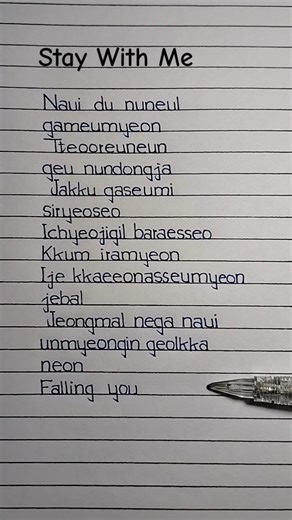 Stay With Me
Naui du nuneul
gameumyeon
Tteooreuneun
geu nundongja
Jakku gaseumi
siryeoseo
Ichyeojigil baraesseo
Kkum iramyeon
Ije kkaeeonasseumyeon
jebal
Jeongmal nega naui
unmyeongin geolkka
neon
Falling you